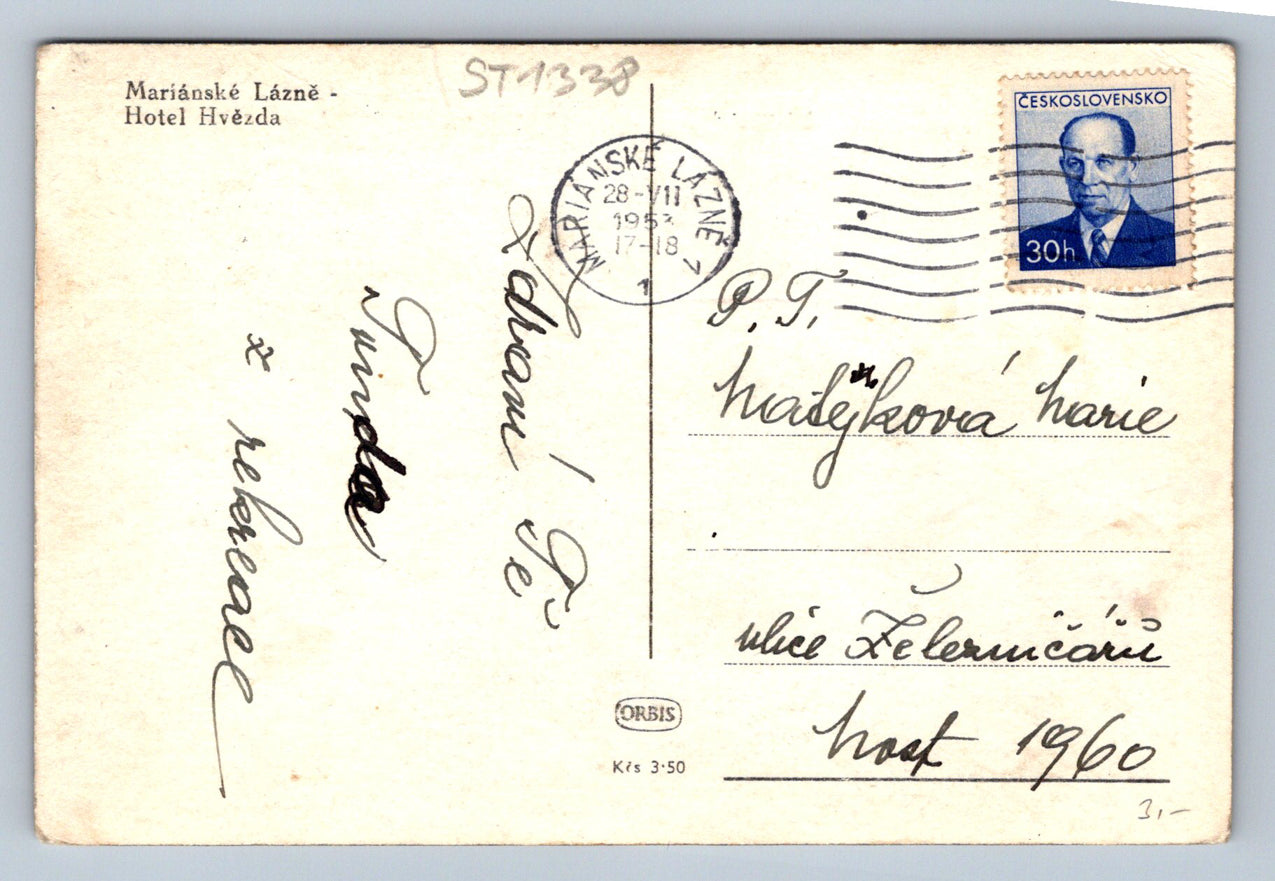 Mariánské Lázně -
Hotel Hvězda
ST1338
MARIÁNSKÉ LÁZNĚ 1
28-VII
1953
17-18
1
ČESKOSLOVENSKO
30h
Zdraví Tě
Tunda
z rekreace
P. T.
Matějková Marie
ulice Želesničářů
Most 1960
ORBIS
Kčs 3·50
3,-